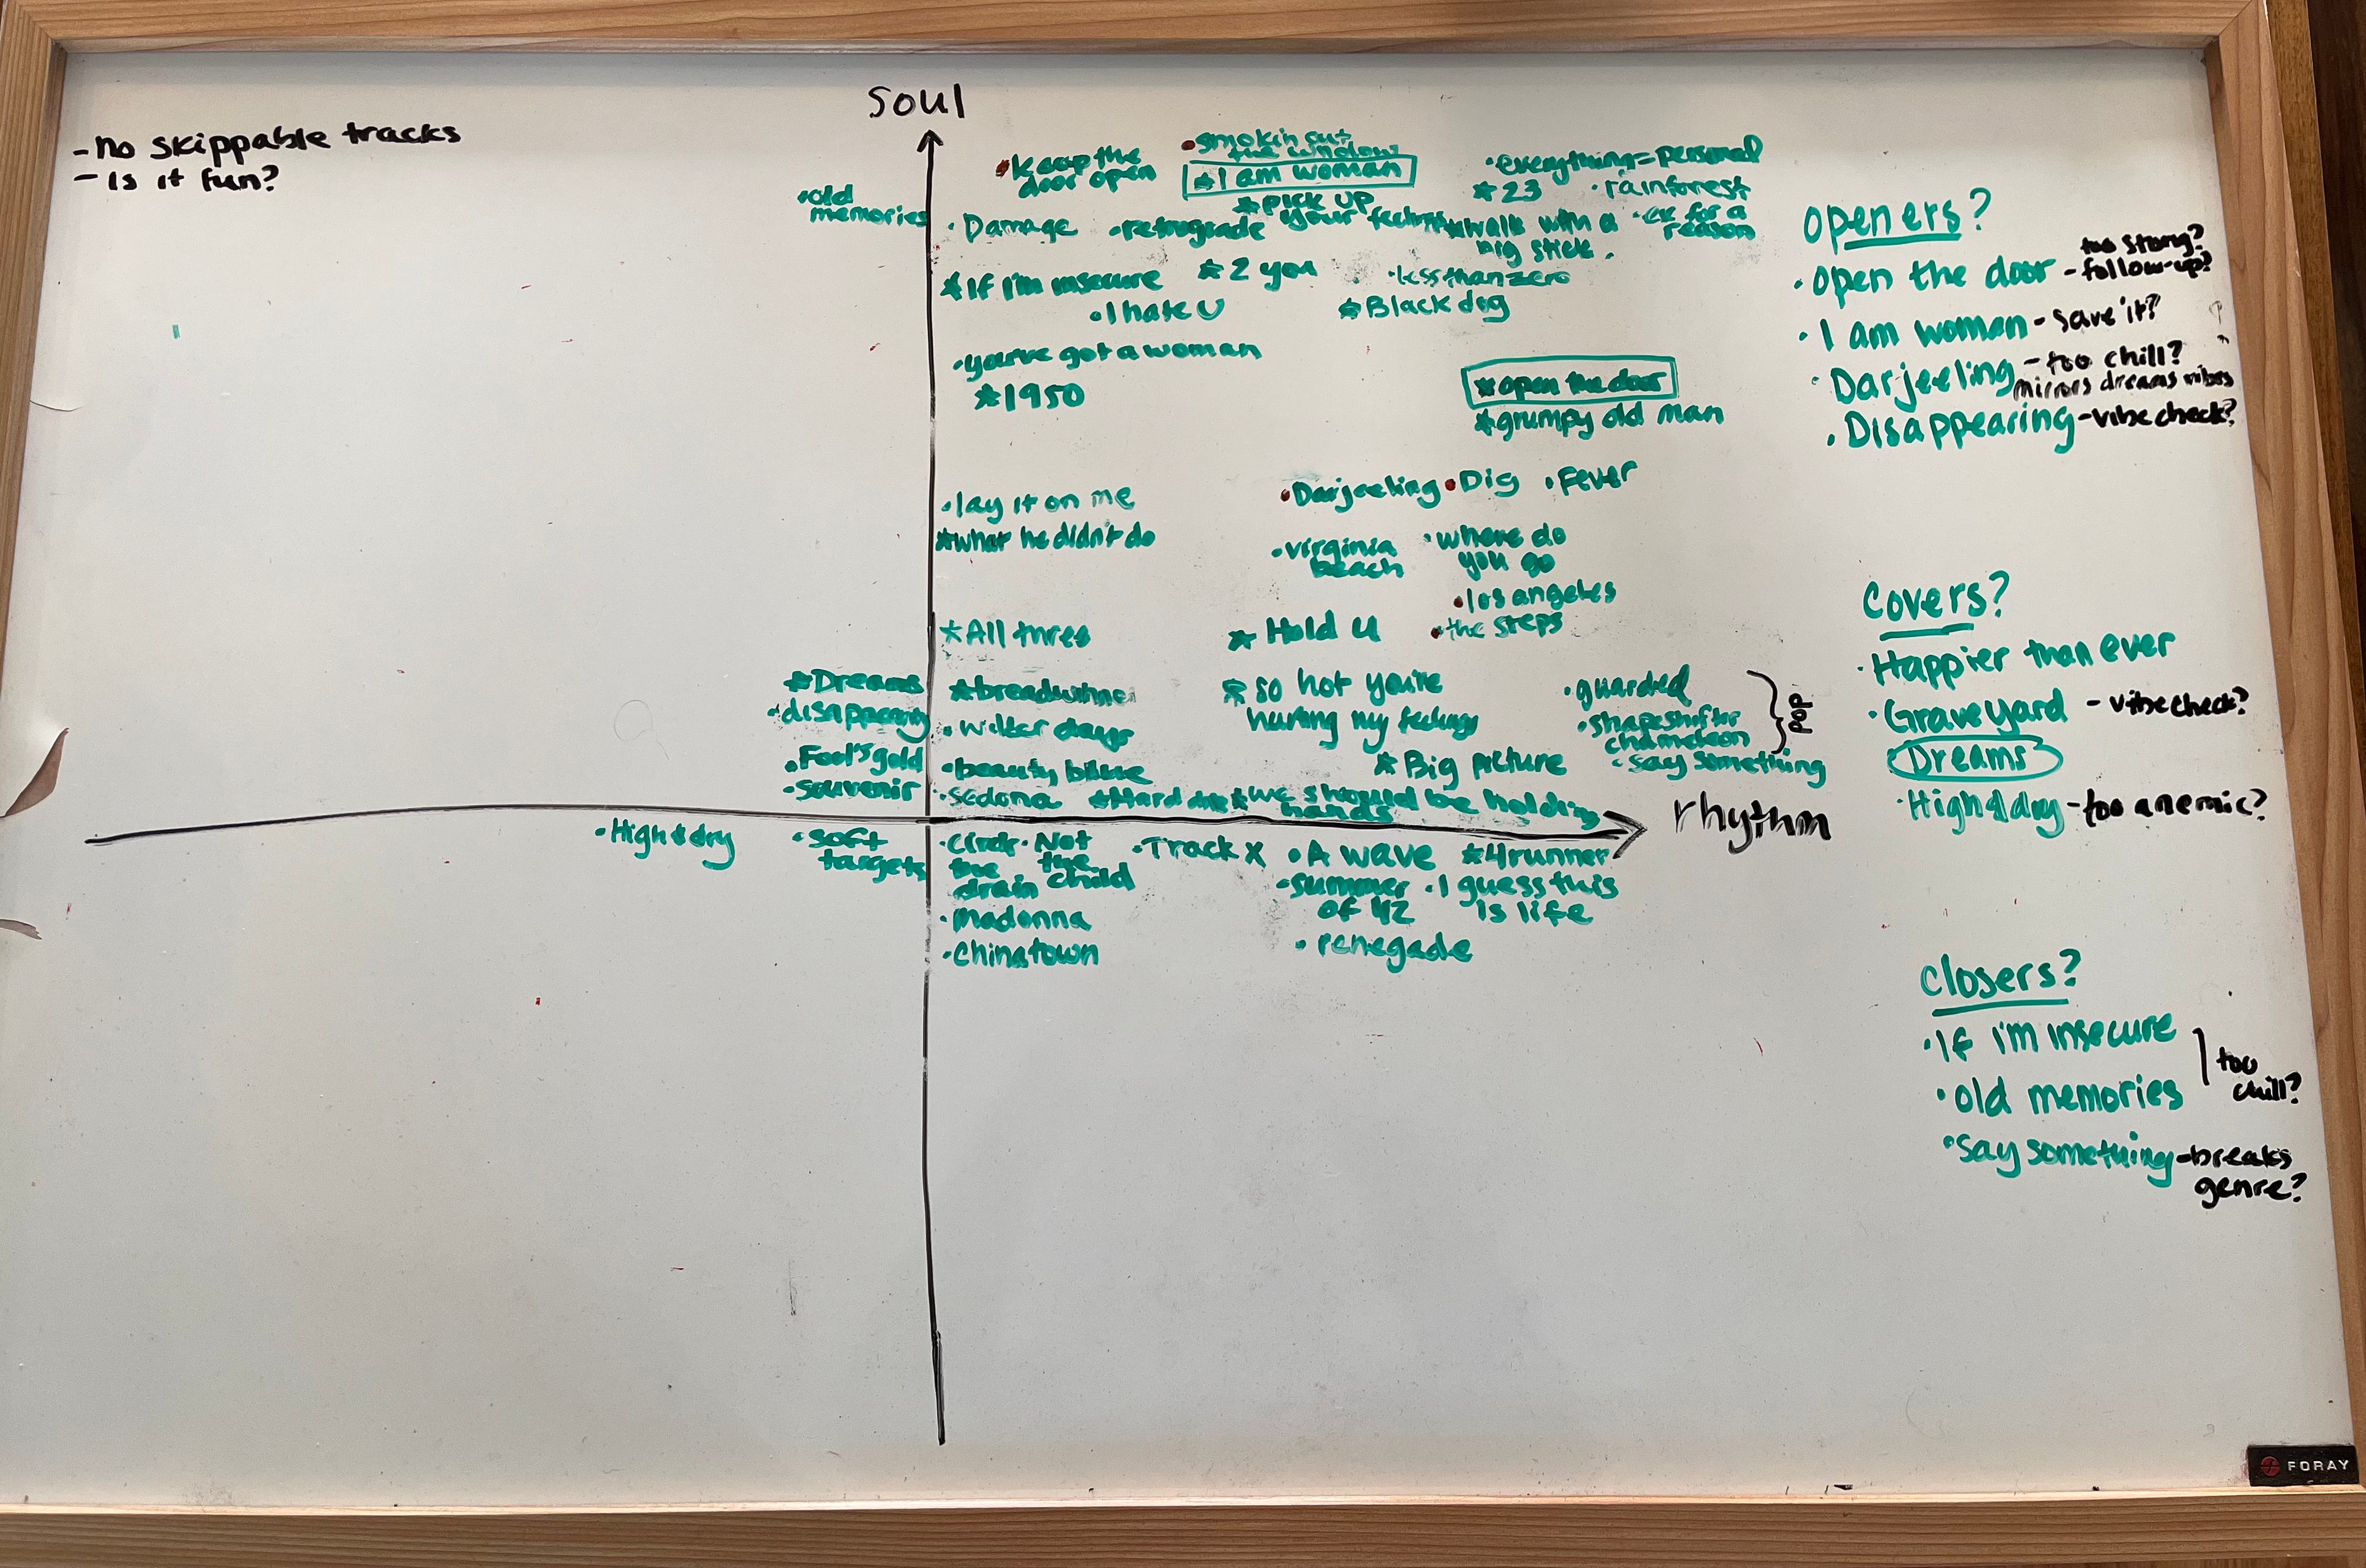 - no skippable tracks
- Is it fun?
Soul
• old
memories
• keep the
door open
• smokin out
the window
* I am woman
* pick up
your feelings
• everything = personal
* 23
• rainforest
• ex for a
reason
• Damage
• retrograde
* walk with a
big stick
* If I'm insecure
* 2 you
• less than zero
• I hate U
* Black dog
• you've got a woman
* 1950
* open the door
* grumpy old man
• lay it on me
* what he didn't do
• Darjeeling
• Dig
• Fever
• virginia
beach
• where do
you go
• los angeles
• the steps
* All three
* Hold U
* Dreams
• disappearing
• Fool's gold
• souvenir
* breadwinner
• wilder days
• beauty blue
• Sedona
* Hard
* we should be holding
hands
* so hot you're
hurting my feelings
* Big picture
• guarded
• shapeshifter
chameleon
• say something
} pop
rhythm
• High & dry
• soft
targets
• circle
the
drain
• Not
the
child
• madonna
• Chinatown
• Track X
• A wave
* 4runner
• summer
of 42
• I guess this
is life
• renegade
openers?
• open the door - too strong?
- follow-up?
• I am woman - save it?
• Darjeeling - too chill?
mirrors dreams vibes
• Disappearing - vibe check?
Covers?
• Happier than ever
• Graveyard - vibe check?
Dreams
• High & dry - too anemic?
closers?
• If I'm insecure
• old memories
too
chill?
• say something - breaks
genre?
FORAY